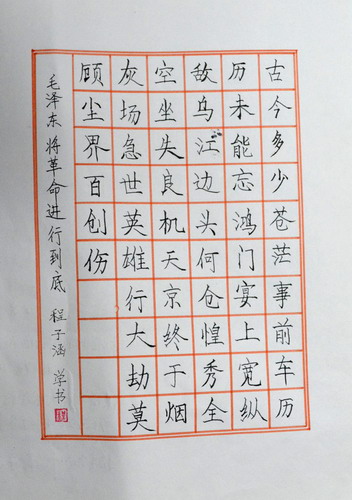 古今多少苍茫事前车历
历未能忘鸿门宴上宽纵
敌乌江边头何仓惶秀全
空坐失良机天京终于烟
灰场急世英雄行大劫莫
顾尘界百创伤
毛泽东将革命进行到底 程子涵 学书